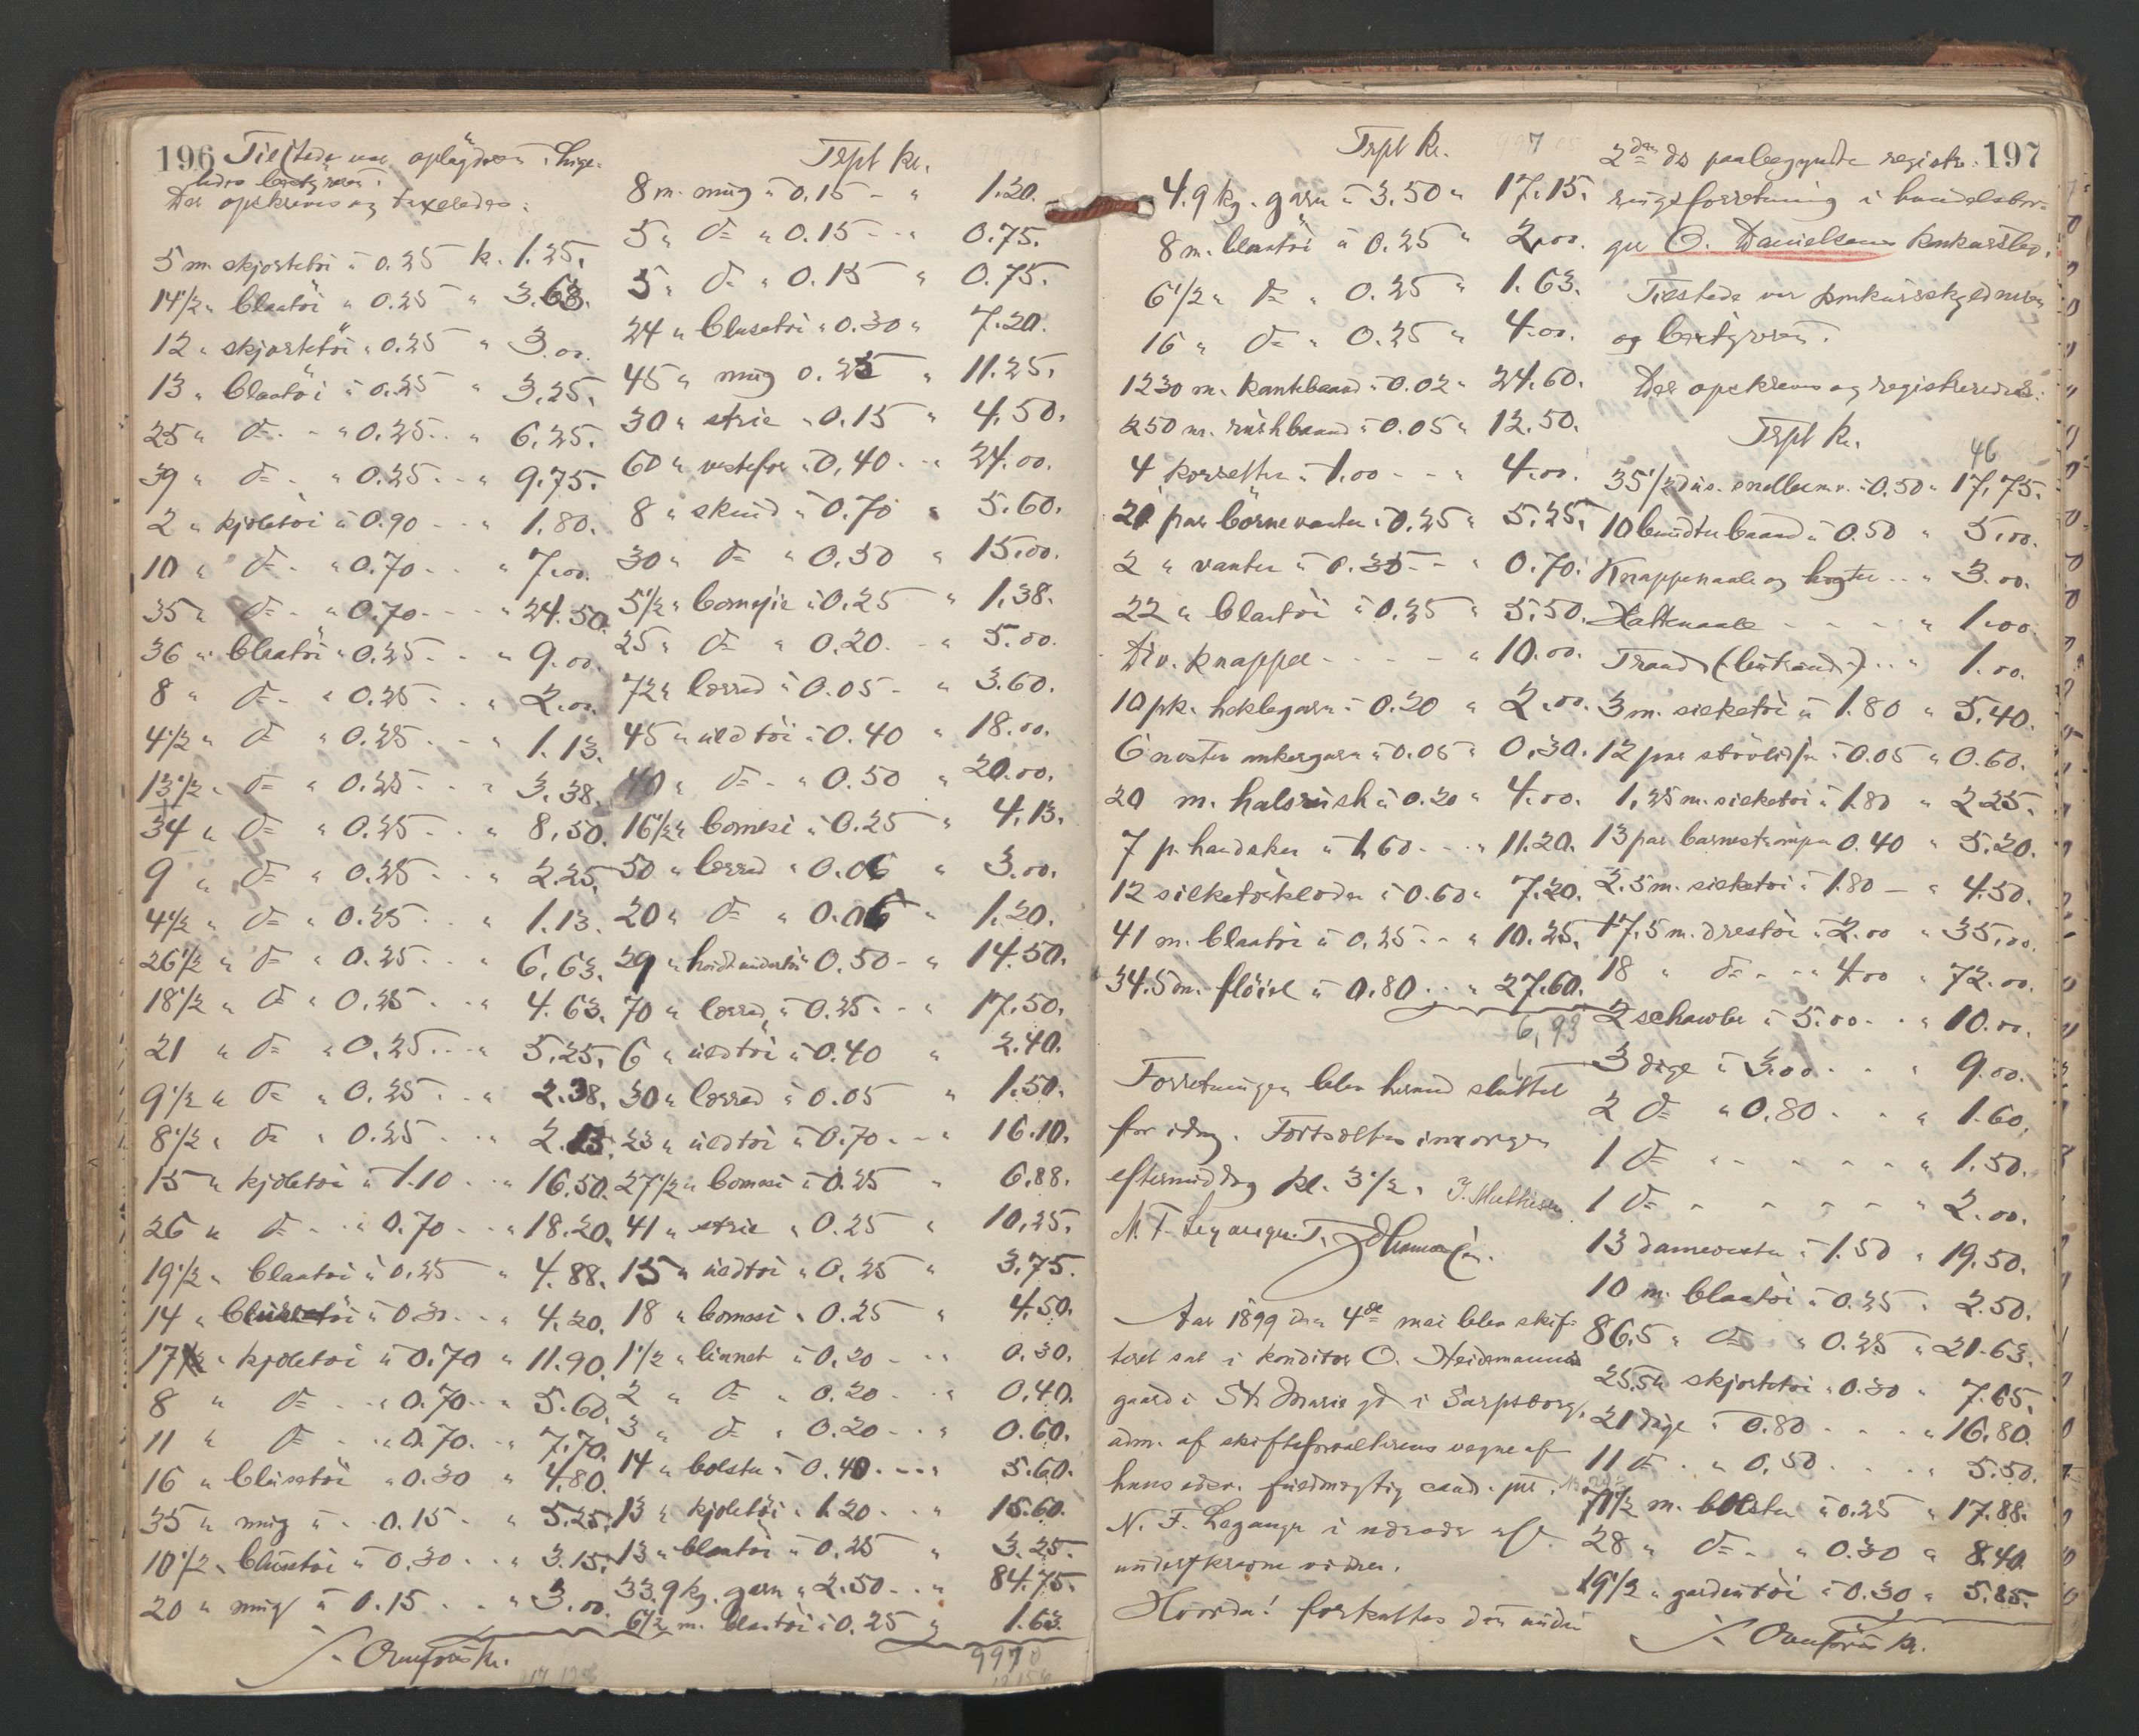 196
Tilstede var opløgderen i lige-
ledes bestyreren.
Der opskreves og taxeredes:
5 m. skjortetöi à 0.25 k. 1.25.
14 1/2 " blaatöi " 0.25 " 3.63.
12 " skjortetöi " 0.25 " 3.00.
13 " blaatöi à 0.25 " 3.25.
25 " do - " 0.25 - - " 6.25.
39 " do - " 0.25 - - " 9.75.
2 " kjoletöi à 0.90 - - " 1.80.
10 " do - " 0.70 - - " 7.00.
35 " do - " 0.70 - - - " 24.50.
36 " blaatöi " 0.25 - - " 9.00.
8 " do - " 0.25 - - " 2.00.
4 1/2 " do " 0.25 - - " 1.13.
13 1/2 " do " 0.25 - - " 3.38.
34 " do " 0.25 - - " 8.50.
9 " do " 0.25 - - " 2.25.
4 1/2 " do " 0.25 - - " 1.13.
26 1/2 " do " 0.25 - - " 6.63.
18 1/2 " do " 0.25 - - " 4.63.
21 " do " 0.25 - - " 5.25.
9 1/2 " do " 0.25 - - " 2.38.
8 1/2 " do " 0.25 - - " 2.13.
15 " kjoletöi à 1.10 - - " 16.50.
26 " do - - " 0.70 - - " 18.20.
19 1/2 " blaatöi à 0.25 " 4.88.
14 " blusetöi à 0.30 - - " 4.20.
17 " kjoletöi à 0.70 " 11.90.
8 " do - - " 0.70 - - " 5.60.
11 " do - - " 0.70 - - " 7.70.
16 " blusetöi " 0.30 " 4.80.
35 " mug à - 0.15 - " 5.25.
10 1/2 " blusetöi à 0.30 - - " 3.15.
20 " mug à 0.15 - - " 3.00.
Overföres kr.
Trspt kr.
8 m. mug à 0.15 - " 1.20.
5 " do " 0.15 - - " 0.75.
5 " do " 0.15 " 0.75.
24 " blusetöi " 0.30 " 7.20.
45 " mug 0.25 " 11.25.
30 " strie " 0.15 " 4.50.
60 " vestefor à 0,40 - - " 24.00.
8 " skind à 0.70 " 5.60.
30 " do " 0.50 " 15.00.
5 1/2 " bomesie à 0.25 " 1.38.
25 " do " 0.20 - - " 5.00.
72 " lærred à 0.05 - " 3.60.
45 " uldtöi à 0.40 " 18.00.
40 " do - " 0.50 " 20.00.
16 1/2 " bomesi à 0.25 " 4.13.
50 " lærred " 0.06 " 3.00.
20 " do " 0.06 " 1.20.
29 " hvidt undertöi 0.50 - " 14.50.
70 " lærred à 0.25 - - " 17.50.
6 " uldtöi à 0.40 " 2.40.
30 " lærred à 0.05 " 1.50.
23 " uldtöi à 0.70 - - " 16.10.
27 1/2 " bomesi à 0.25 " 6.88.
41 " strie " 0.25 " 10.25.
15 " uldtöi " 0.25 " 3.75.
18 " bomesi " 0.25 " 4.50.
1 1/2 " linnet à 0.20 - - " 0.30.
2 " do " 0.20 - - " 0.40.
3 " do " 0.20 - - " 0.60.
14 " bolster à 0.40 - - " 5.60.
13 " kjoletöi " 1.20 - - " 15.60.
13 " blaatöi " 0.25 " 3.25.
33.9 kg. garn " 2.50 - - " 84.75.
6 1/2 m. blaatöi à 0.25 " 1.63.
Trspt kr.
4.9 kg. garn à 3.50 " 17.15.
8 m. blaatöi à 0.25 " 2.00.
6 1/2 " do " 0.25 " 1.63.
16 " do " 0.25 " 4.00.
1230 m. kantebaand à 0.02 " 24.60.
250 m. rushbaand à 0.05 " 12.50.
4 korsetter à 1.00 - - " 4.00.
21 par börnevanter à 0.25 " 5.25.
2 " vanter à 0.35 - - " 0.70.
22 " blaatöi à 0.25 " 5.50.
Div. knapper - - - - " 10.00.
10 pk. heklegarn à 0.20 " 2.00.
6 nöster ankergarn à 0.05 " 0.30.
20 m. halsrush à 0.20 " 4.00.
7 p. handsker à 1.60 - - " 11.20.
12 silketörklæder à 0.60 " 7.20.
41 m. blaatöi à 0.25 - - " 10.25.
34.5 m. flöiel à 0.80 - - " 27.60.
6,93
Forretningen blev hermed sluttet
for idag. Fortsættes imorgen
eftermiddag kl. 3 1/2.
J. Mathisen
Aar 1899 den 4de mai blev skif-
teret sat i konditor O. Heidemanns
gaard i St. Mariegd i Sarpsborg,
adm. af skifteforvalterens vegne af
hans edsv. fuldmægtig cand. jur.
N. F. Leganger i nærvær af
underskrevne vidner.
Hvorda! forkastes den under
197
2den ds paabegyndte registre-
ringsforretning i handelsbor-
ger O. Danielsens konkursbo.
Tilstede var konkursskyldneren
og bestyreren.
Der opskreves og registreredes:
Trspt kr.
46
35 1/2 dus. snellerav. à 0.50 " 17.75.
10 bundter baand à 0.50 " 5.00.
Knappenaale og hægter - - " 3.00.
Hattenaale - - - - " 1.00.
Traad (lintraad) - - " 1.00.
3 m. silketöi à 1.80 " 5.40.
12 par à 0.05 " 0.60.
1,25 m. silketöi à 1.80 " 2.25.
13 par barnestrømper 0.40 " 5.20.
2.5 m. silketöi à 1.80 - " 4.50.
17.5 m. drestöi à 2.00 " 35.00.
18 " do - - " 4.00 " 72.00.
2 schawler à 5.00 - - " 10.00.
3 duge à 3.00 - - " 9.00.
2 do " 0.80 - - " 1.60.
1 do - - - - - " 1.50.
1 do - - - - - " 2.00.
13 damevester à 1.50 " 19.50.
10 m. blaatöi à 0.25 " 2.50.
86.5 " do " 0.25 " 21.63.
25.5 " skjortetöi " 0.30 " 7.65.
21 duge à 0.80 - - - " 16.80.
11 do - " 0.50 - - - " 5.50.
71 1/2 m. bolster à 0.25 " 17.88.
28 " do - " 0.30 " 8.40.
19 1/2 " gardentöi à 0.30 " 5.85.
Overföres kr.